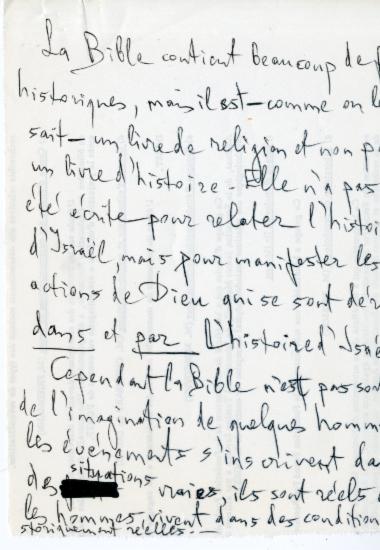 La Bible contient beaucoup de f
historiques, mais il est – comme on le
sait – un livre de religion et non pa
un livre d'histoire. Elle n'a pas
été écrite pour relater l'histoi
d'Israël, mais pour manifester les
actions de Dieu qui se sont dér
dans et par l'histoire d'Isra
Cependant la Bible n'est pas sor
de l'imagination de quelques homm
les événements s'inscrivent da
situations
des vraies, ils sont réels
les hommes vivent dans des condition
storiquement réelles. —